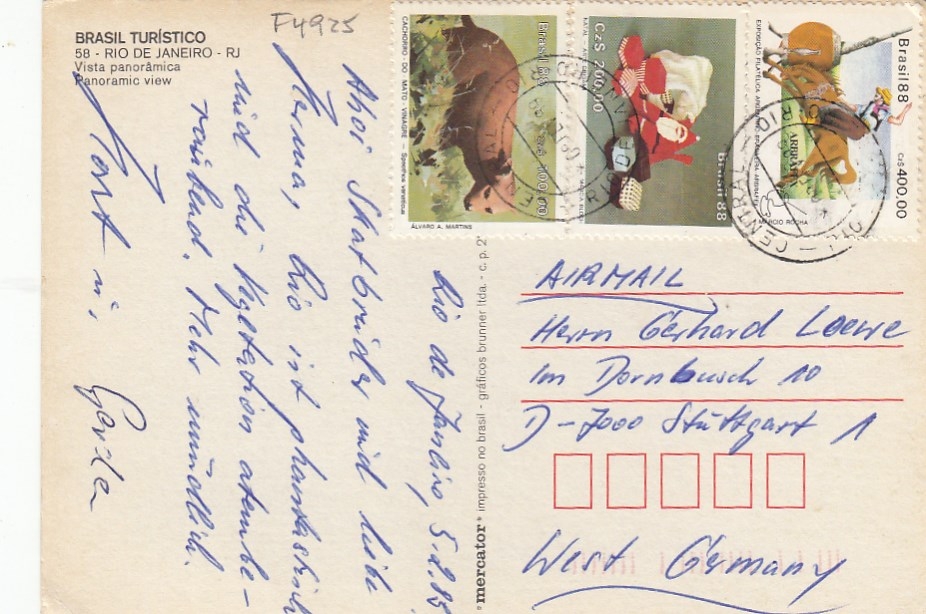 F4925
BRASIL TURÍSTICO
58 - RIO DE JANEIRO - RJ
Vista panorâmica
Panoramic view
Rio de Janeiro, 5.2.89
Ahoi Skatbrüder und liebe
Herma, Rio ist phantastisch
und die Vegetation atembe-
raubend. Mehr mündlich.
Horst
Gerda
mercator® impresso no brasil - gráficos brunner ltda. - c. p. 2
CACHORRO DO MATO VINAGRE — Speothos venaticus
Brasil 88
100,00
ÁLVARO A. MARTINS
CzS 200,00
Brasil 88
Brasil 88
CzS 400,00
MARCIO ROCHA
CENTRAL
AIRMAIL
Herrn Gerhard Loewe
Im Dornbusch 10
D-7000 Stuttgart 1
West Germany